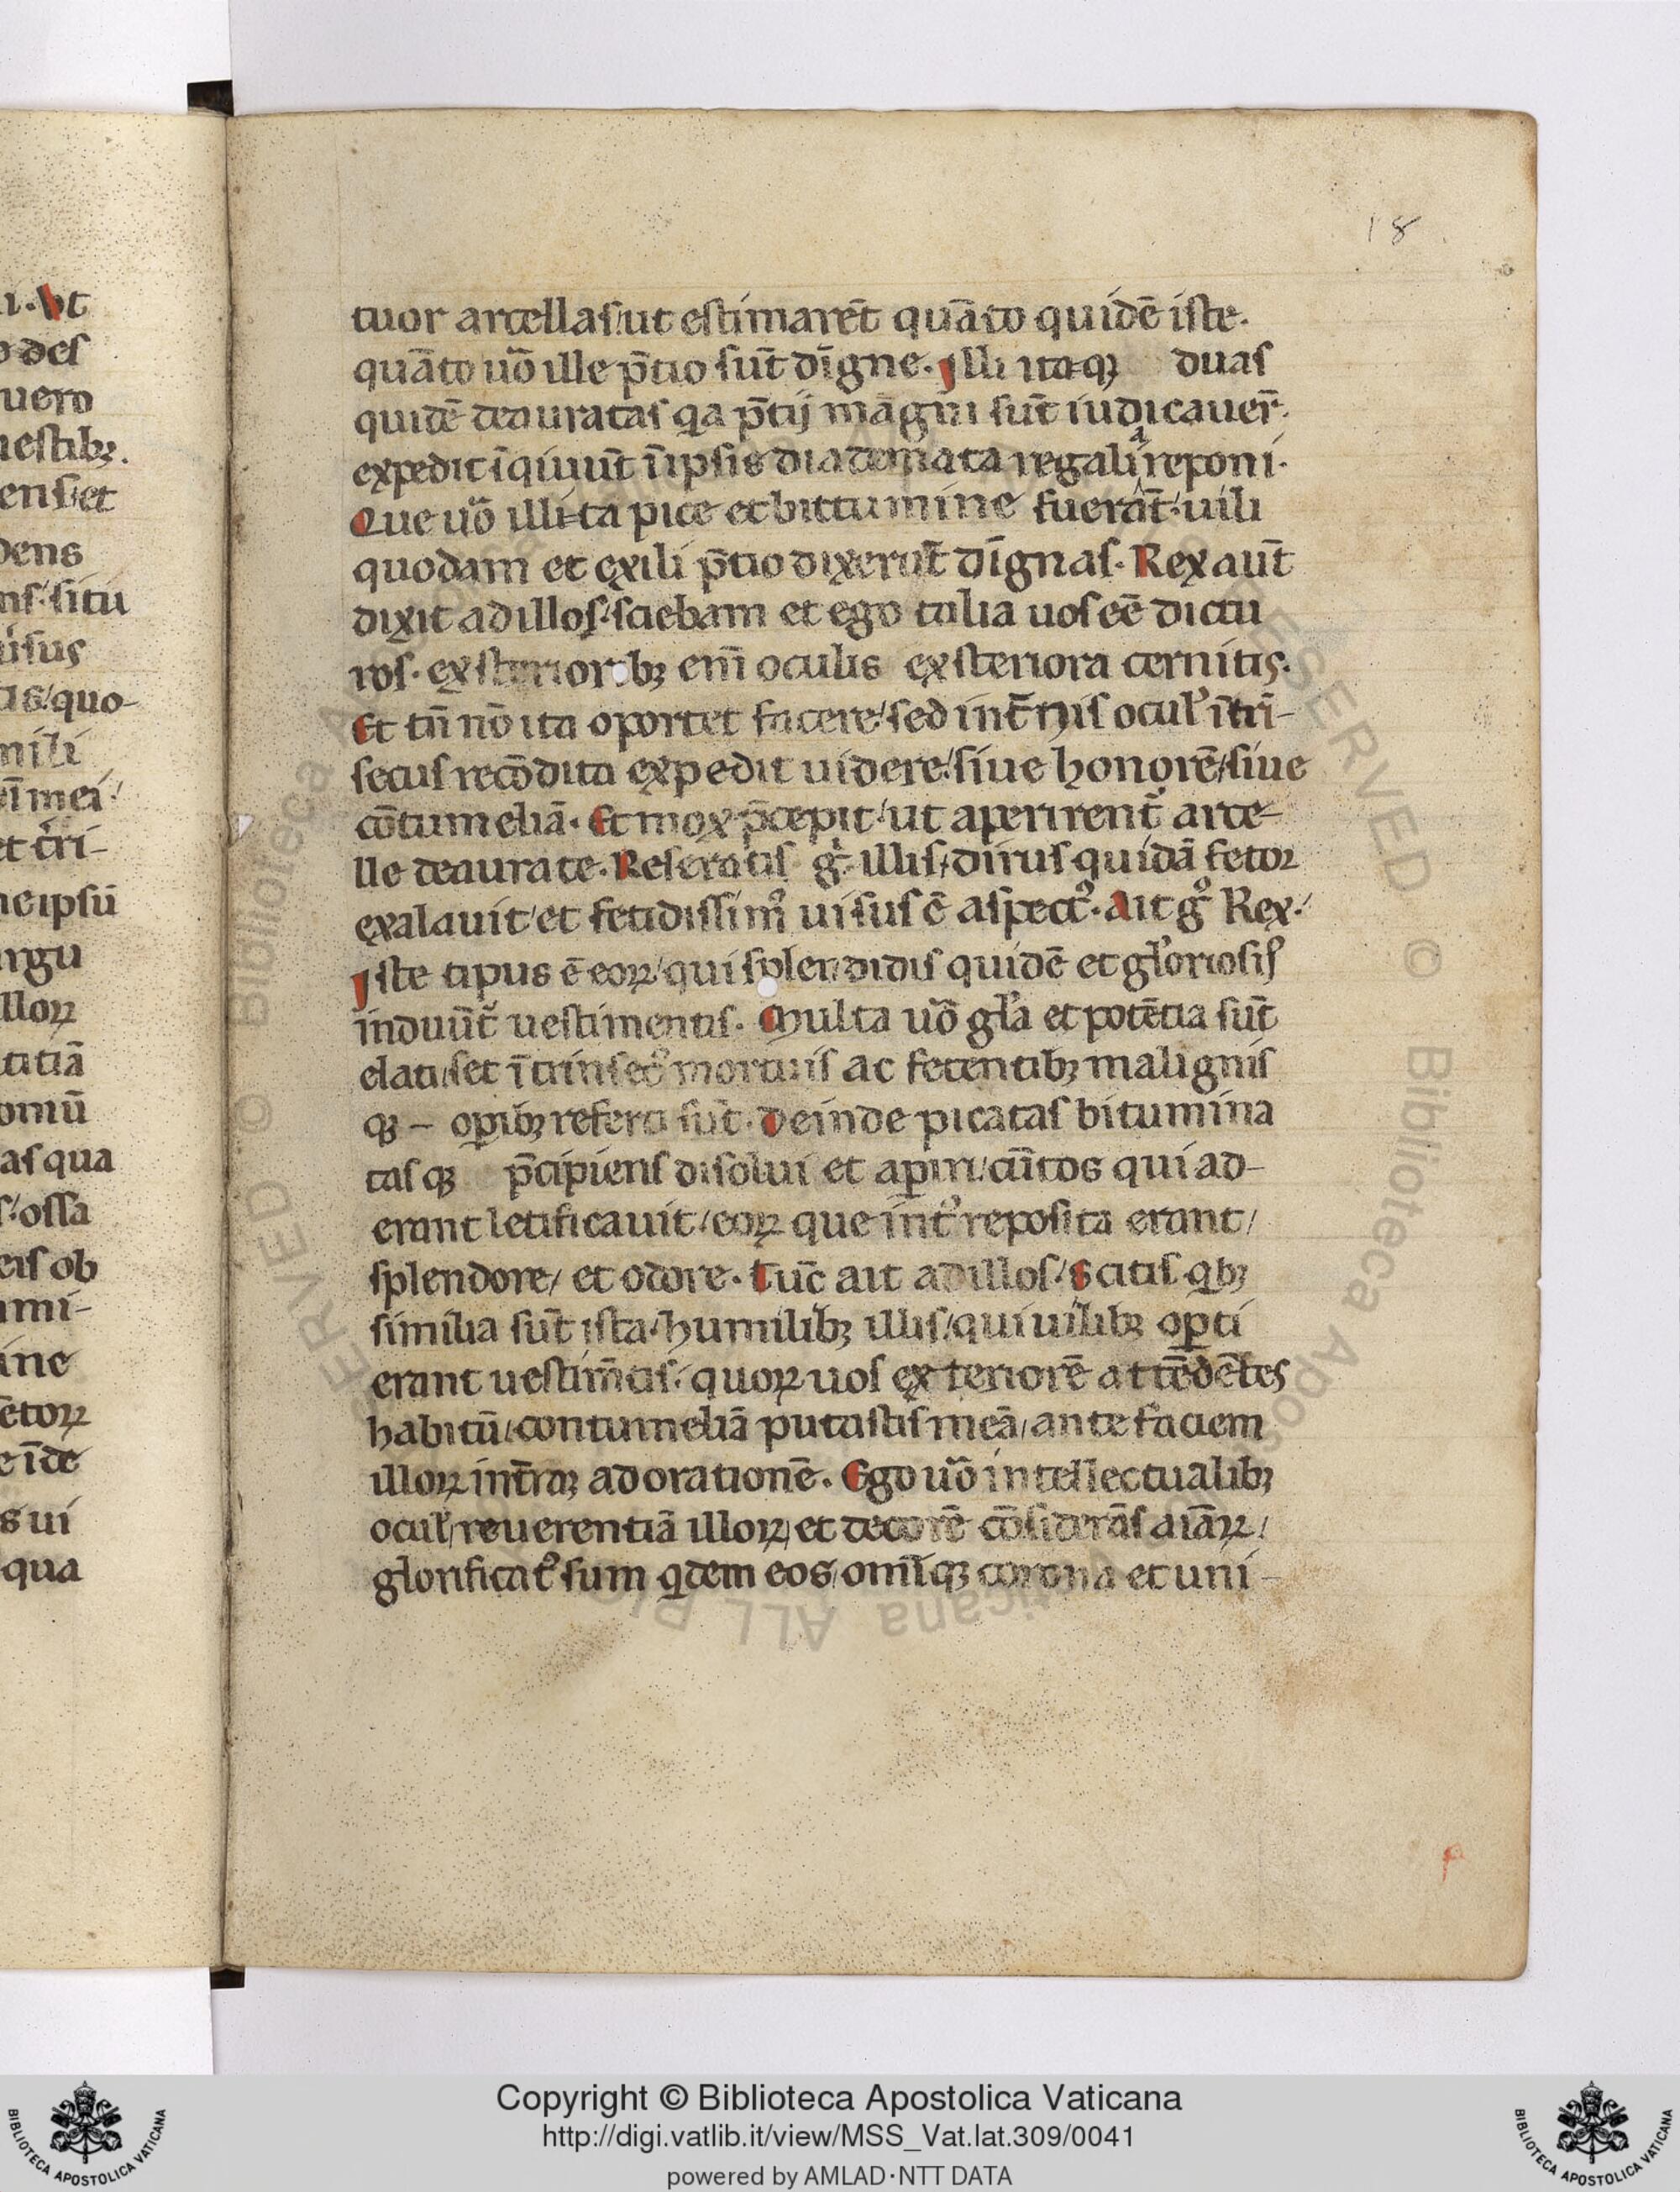 18
tuor arcellas/ut estimarēt quāto quidē iste.
quāto uō ille p̄tio sūt dīgne. Illi itaqꝫ duas
quidē deauratas qa p̄tij māgni sūt iudicauer̄.
expedit īqiuūt īipsis diademata regalia reponi.
Que uō illita pice et bittumine fuerāt/uili
quodam et exili p̄tio dixerūt dīgnas. Rex aūt
dixit ad illos/sciebam et ego talia uos eē dictu
ros. exsterioribꝫ enī oculis exsteriora cernitis.
Et tn̄ nō ita oportet facere/sed int̄nis ocul' ītrī-
secus recōdita expedit uidere/siue honorē/siue
cōtumeliā. Et mox p̄cepit/ut aperirent᷑ arce-
lle deaurate. Reseratis gͦ illis/dirus quidā fetor
exalauit/et fetidissimꝰ uisus ē aspectꝰ. Ait gͦ Rex./
Iste tipus ē eoꝝ/qui splendidis quidē et gloriosis
induūt᷑ uestimentis. Multa uō gl'a et potētia sūt
elati/set ītrinsecꝰ mortuis ac fetentibꝫ malignis
qꝫ – oꝑibꝫ referti sūt. Deinde picatas bitumina
tas qꝫ p̄cipiens disolui et aꝑiri/cūctos qui ad-
erant letificauit/eoꝝ que intꝰ reposita erant/
splendore/ et odore. Tūc ait ad illos/Scitis qbꝫ
similia sūt ista/humilibꝫ illis/qui uilibꝫ oꝑti
erant uestim̄tis/quoꝝ uos exteriorē attēdētes
habitū/contumeliā putastis meā/ante faciem
illoꝝ int̄raꝫ adorationē. Ego uō intellectualibꝫ
ocul'/reuerentiā illoꝝ/et decorē cōsiderās aīaꝝ/
glorificatꝰ sum qdem eos/omīqꝫ corona et uni-
ı. Vt
o des
uero
uestibꝫ.
ens/et
dens
ns/situ
uisus
tis/quo-
mili
ī mei/
et t̄ri-
ne ipsū
ngu
lloꝝ
titiā
omū
as qua
s/ossa
eis ob
imi-
ine
ētoꝝ
e īde
s ui
qua
Copyright © Biblioteca Apostolica Vaticana
http://digi.vatlib.it/view/MSS_Vat.lat.309/0041
powered by AMLAD·NTT DATA
BIBLIOTECA APOSTOLICA VATICANA
BIBLIOTECA APOSTOLICA VATICANA